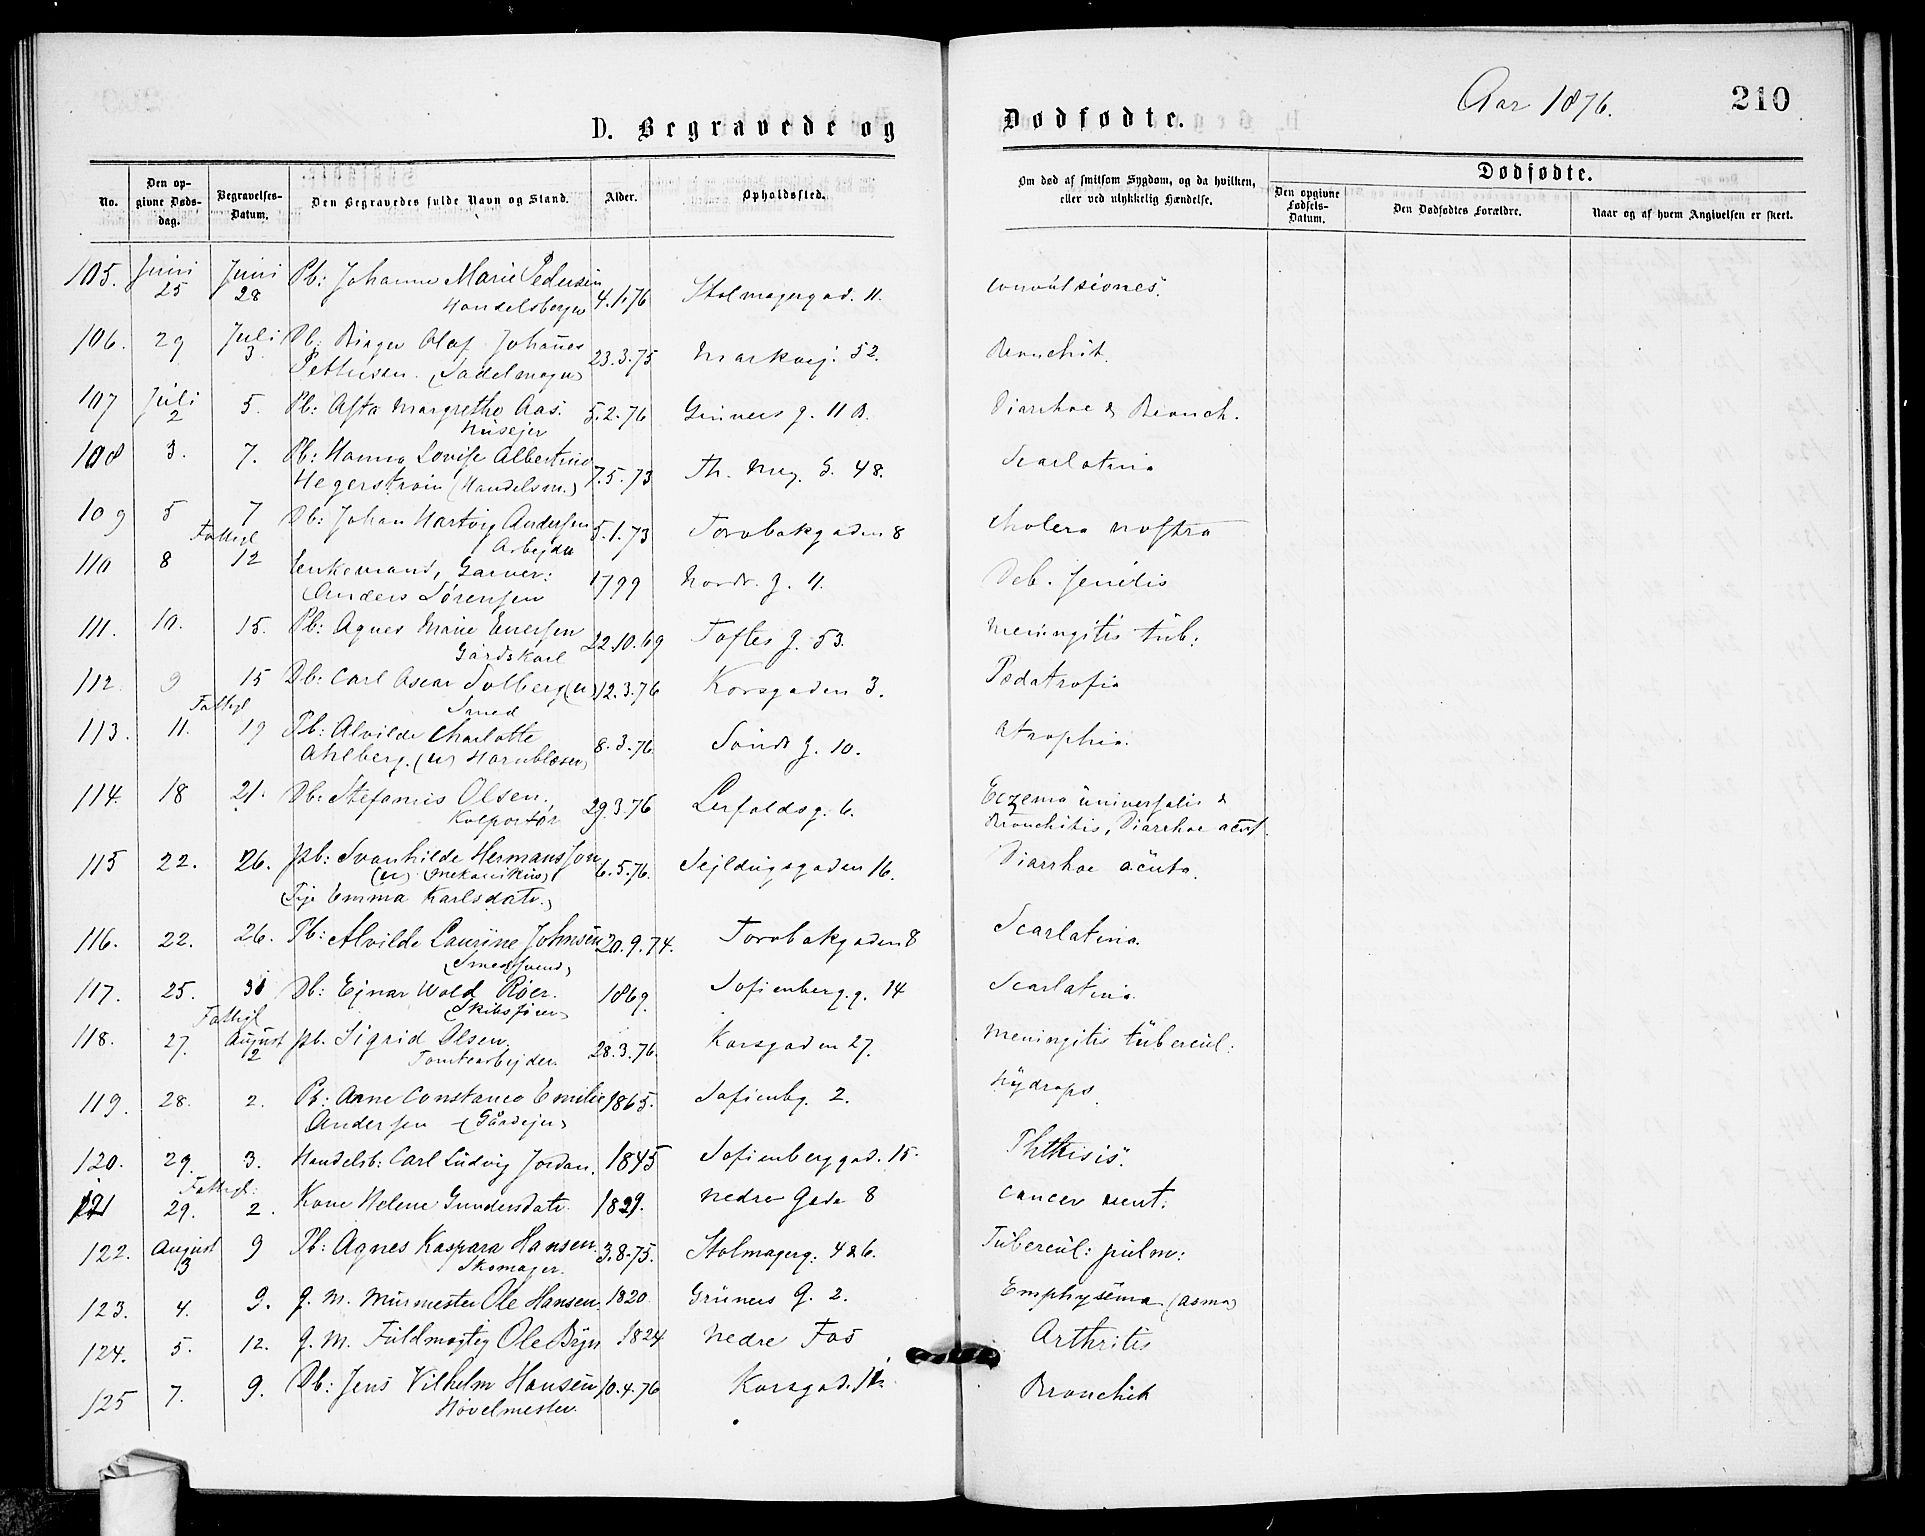 Aar 1876.
210
D. Begravede og Dødfødte.
No.
Den opgivne Dødsdag.
Begravelses-Datum.
Den Begravedes fulde Navn og Stand.
Alder.
Opholdssted.
Om død af smitsom Sygdom, og da hvilken, eller ved ulykkelig Hændelse.
Dødfødte.
Den opgivne Fødsels-Datum.
Den Dødfødtes Forældre.
Naar og af hvem Angivelsen er skeet.
105. Juni 25 Juni 28 Pb: Johanne Marie Pedersen 4.1.76 Stolmagergad. 11. convulsiones.
Handelsborger
106. 29 Juli 3. Db: Birger Olaf Johanes 23.3.75 Markvej. 52. Bronchit.
Pettersen. (Sadelmager)
107 Juli 2 5. Pb: Asta Margrethe Aas. 5.2.76 Grüners g. 11 B. Diarrhoe & Bronch.
Husejer
108 3. 7. Pb: Hanna Lovise Albertine 7.5.73 Th. Mey. G. 48. Scarlatina
Hegerstrøm (Handelsm.)
109 5 7 Db: Johan Hartvig Andersen 5.1.73 Torvbakgaden 8 cholera nostra
Fattigl Arbejder
110 8 12 Enkemand, Garver: 1799 Nordr. g. 11. Deb. senilis
Anders Sørensen
111. 10. 15. Pb: Agnes Marie Enersen 22.10.69 Toftes g. 53. Meningitis tub:
Gårdskarl
112. 9 15 Db: Carl Oscar Solberg (u) 12.3.76 Korsgaden 3. Pædatrofia
Fattigl Smed
113. 11. 19 Pb: Alvilde Charlotte 8.3.76 Søndr g. 10. Atrophia.
Ahlberg. (u) Hornblæser
114. 18 21. Db: Stefanus Olsen. 29.3.76 Lerfaldsg. 6. Eczema universalis &
Kolportør Bronchitis, Diarrhoe acut.
115 22. 26. pb: Svanhilde Hermansson 6.5.76. Sejldugsgaden 16. Diarrhoe acuta.
(u) (Mekanikus)
(Pige Emma Karlsdatr.)
116. 22. 26. Pb: Alvilde Laurine Johnsen 20.9.74. Torvbakgaden 8 Scarlatina.
(Smedsvend)
117. 25. 31 Db: Ejnar Wold Røer. 1869. Sofienberg.g. 14 Scarlatina.
Fattigl (Skibsfører)
118. 27. August 2 pb. Sigrid Olsen. 28.3.76. Korsgaden 27. Meningitis tubercul:
Tomtearbejder.
119. 28. 2. Pb: Anne Constance Emilie 1865. Sofienbg. 2. Hydrops.
Andersen (Gårdejer)
120. 29. 3. Handelsb: Carl Ludvig Jordan. 1845 Sofienberggad. 15. Phthisis.
Fattigl:
121 29. 2. Kone Helene Gundersdatr. 1829. Nedre Gade 8 cancer vent.
122. August 3 9 Pb: Agnes Kaspara Hansen. 3.8.75. Stolmagerg: 4 & 6. Tubercul: pulm:
Skomager.
123. 4. 9. g. M. Murmester Ole Hansen. 1820. Grüners G. 2. Emphysema (asma)
124. 5. 12. g. M. Fuldmægtig Ole Bryn 1824 Nedre Fos Arthritis
125 7. 9. Db: Jens Vilhelm Hansen 10.4.76 Korsgad. 11. Bronchit
Høvelmester.